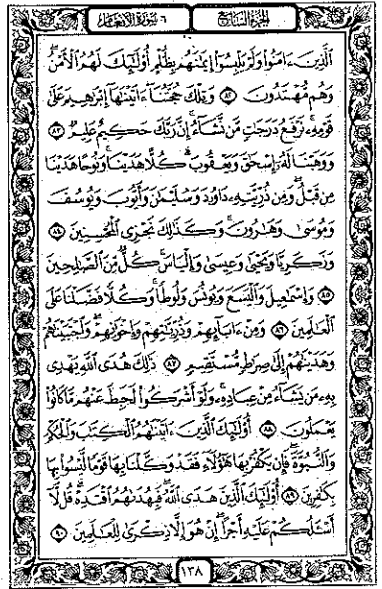 الجزء السابع ٦ سورة الأنعام
الَّذِينَ ءَامَنُوا وَلَمْ يَلْبِسُوا إِيمَٰنَهُم بِظُلْمٍ أُولَٰئِكَ لَهُمُ الْأَمْنُ
وَهُم مُّهْتَدُونَ ٨٢ وَتِلْكَ حُجَّتُنَا ءَاتَيْنَٰهَا إِبْرَٰهِيمَ عَلَىٰ
قَوْمِهِ نَرْفَعُ دَرَجَٰتٍ مَّن نَّشَاءُ إِنَّ رَبَّكَ حَكِيمٌ عَلِيمٌ ٨٣
وَوَهَبْنَا لَهُ إِسْحَٰقَ وَيَعْقُوبَ كُلًّا هَدَيْنَا وَنُوحًا هَدَيْنَا
مِن قَبْلُ وَمِن ذُرِّيَّتِهِ دَاوُدَ وَسُلَيْمَٰنَ وَأَيُّوبَ وَيُوسُفَ
وَمُوسَىٰ وَهَٰرُونَ وَكَذَٰلِكَ نَجْزِي الْمُحْسِنِينَ ٨٤
وَزَكَرِيَّا وَيَحْيَىٰ وَعِيسَىٰ وَإِلْيَاسَ كُلٌّ مِّنَ الصَّٰلِحِينَ
٨٥ وَإِسْمَٰعِيلَ وَالْيَسَعَ وَيُونُسَ وَلُوطًا وَكُلًّا فَضَّلْنَا عَلَى
الْعَٰلَمِينَ ٨٦ وَمِنْ ءَابَائِهِمْ وَذُرِّيَّٰتِهِمْ وَإِخْوَٰنِهِمْ وَاجْتَبَيْنَٰهُمْ
وَهَدَيْنَٰهُمْ إِلَىٰ صِرَٰطٍ مُّسْتَقِيمٍ ٨٧ ذَٰلِكَ هُدَى اللَّهِ يَهْدِي
بِهِ مَن يَشَاءُ مِنْ عِبَادِهِ وَلَوْ أَشْرَكُوا لَحَبِطَ عَنْهُم مَّا كَانُوا
يَعْمَلُونَ ٨٨ أُولَٰئِكَ الَّذِينَ ءَاتَيْنَٰهُمُ الْكِتَٰبَ وَالْحُكْمَ
وَالنُّبُوَّةَ فَإِن يَكْفُرْ بِهَا هَٰؤُلَاءِ فَقَدْ وَكَّلْنَا بِهَا قَوْمًا لَّيْسُوا بِهَا
بِكَٰفِرِينَ ٨٩ أُولَٰئِكَ الَّذِينَ هَدَى اللَّهُ فَبِهُدَىٰهُمُ اقْتَدِهْ قُل لَّا
أَسْـَٔلُكُمْ عَلَيْهِ أَجْرًا إِنْ هُوَ إِلَّا ذِكْرَىٰ لِلْعَٰلَمِينَ ٩٠
١٣٨